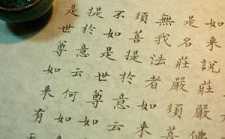 如來說莊嚴佛
是名莊嚴
無我法者如來
須菩提於意云
如是世尊如
提於意云何如
是世尊如來有